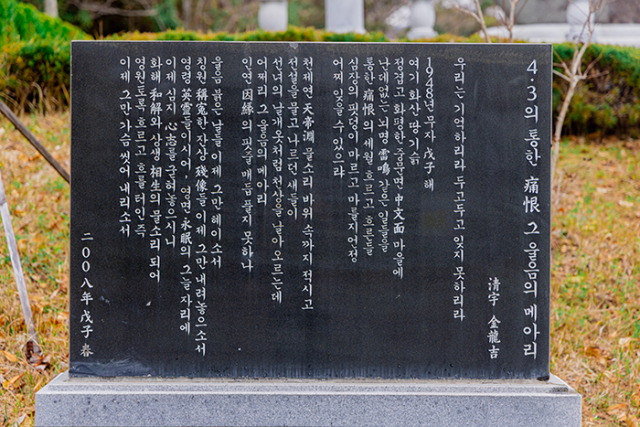 4·3의 통한 痛恨 그 울음의 메아리
清宇 金龍吉
우리는 기억하리라 두고두고 잊지 못하리라
1948년 무자 戊子 해
여기 화산 땅 기슭
정겹고 화평한 중문면 中文面 마을에
난데없는 뇌명 雷鳴 같은 일들을
통한 痛恨의 세월 흐르고 흐른들
심장의 핏덩이 마르고 마를지언정
어찌 잊을 수 있으랴
천제연 天帝淵 물소리 바위 속까지 적시고
전설을 물고 나르던 새들이
선녀의 날개옷처럼 천상을 날아오르는데
어쩌리 그 울음의 메아리
인연 因緣의 핏줄 매듭 풀지 못하나
울음 맑은 날들 이제 그만 헤이소서
칭원 稱寃한 잔상 殘像들 이제 그만 내려놓으소서
영령 英靈들이시어, 영면 永眠의 그늘 자리에
이제 심지 心志를 굳혀 놓으시니
화해 和解와 상생 相生의 물소리 되어
영원토록 흐르고 흐를터인즉
이제 그만 가슴 씻어 내리소서
二00八年 戊子 春